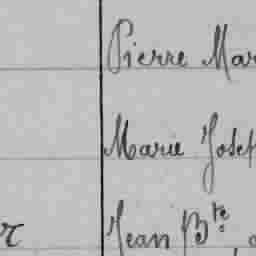 Pierre Mar
Marie Josep
Jean Bte